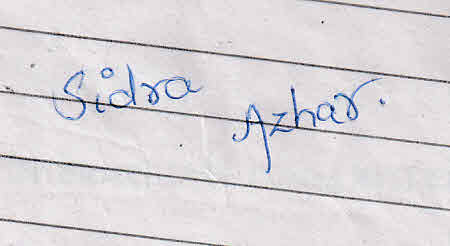 Sidra
Azhar.